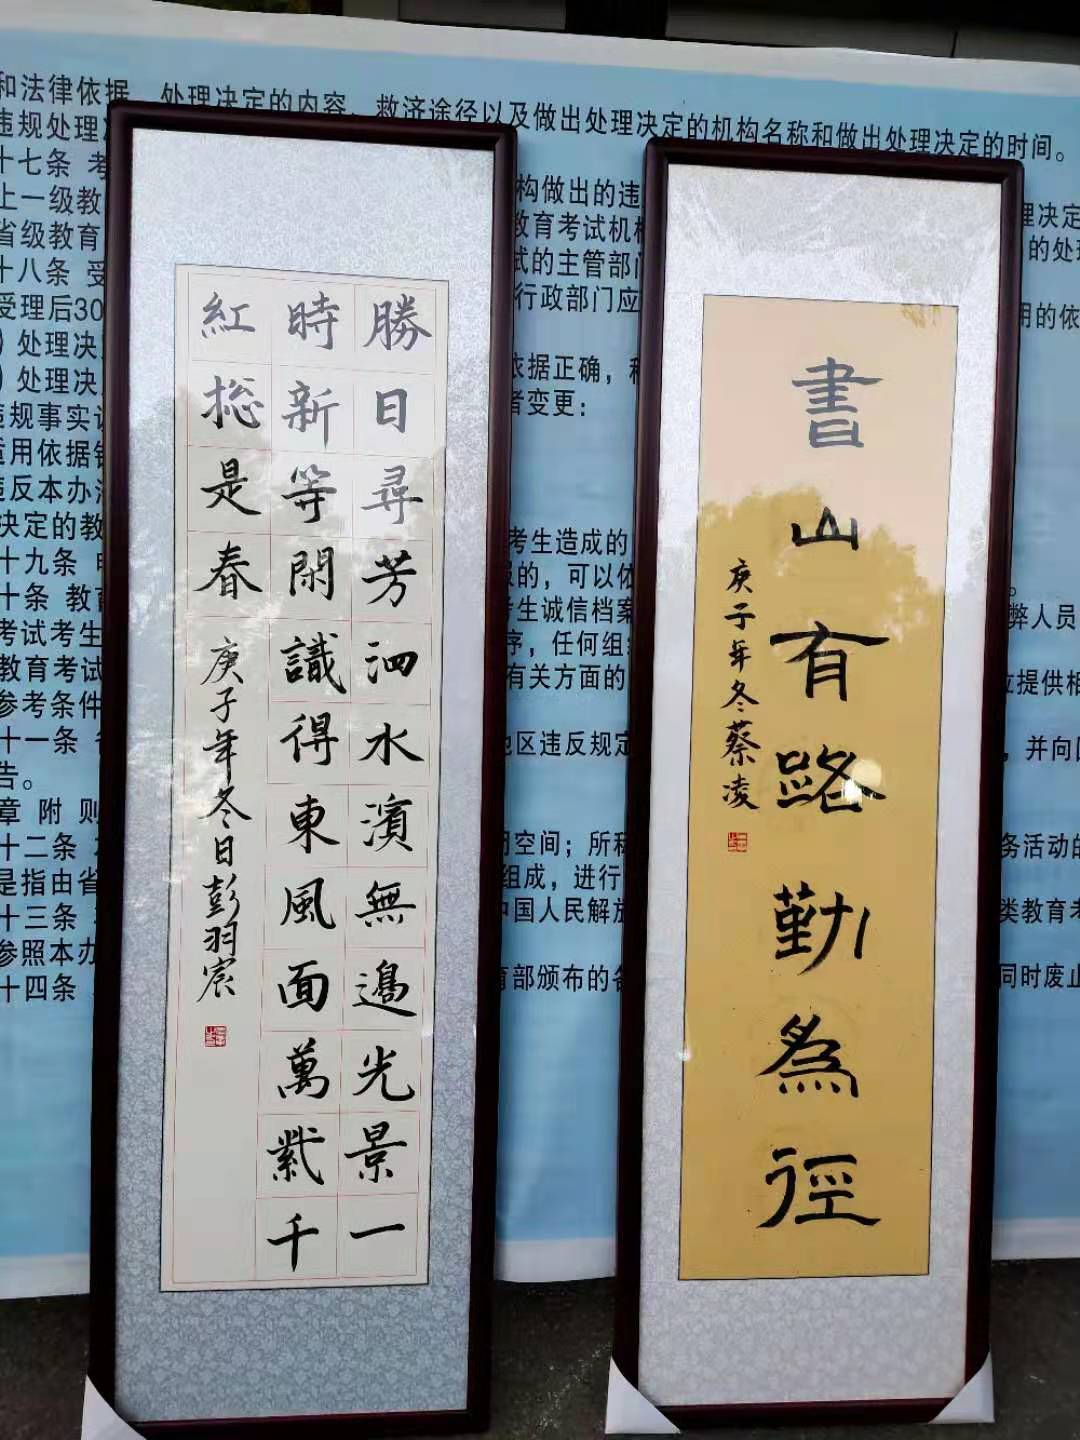 和法律依据、处理决定的内容、救济途径以及做出处理决定的机构名称和做出处理决定的时间。
违规处理决
十七条 考 构做出的违 理决定
上一级教 教育考试机构 的处理
省级教育 式的主管部门
十八条 受 行政部门应 用的依
受理后30
）处理决 依据正确，
）处理决 者变更：
违规事实认
适用依据错
违反本办法
决定的教 考生造成的
十九条 申 的，可以依
十条 教育 考生诚信档案 弊人员
考试考生 序，任何组织
教育考试 有关方面的 提供相
参考条件
十一条 省 地区违反规定 ，并向
告。
章 附 则
十二条 闭空间；所称 务活动的
是指由省 组成，进行
十三条 中国人民解放 类教育考
参照本办
十四条 育部颁布的各 同时废止
勝日尋芳泗水濱無邊光景一
時新等閑識得東風面萬紫千
紅捴是春
庚子年冬日彭羽宸
書山有路勤為徑
庚子年冬蔡凌